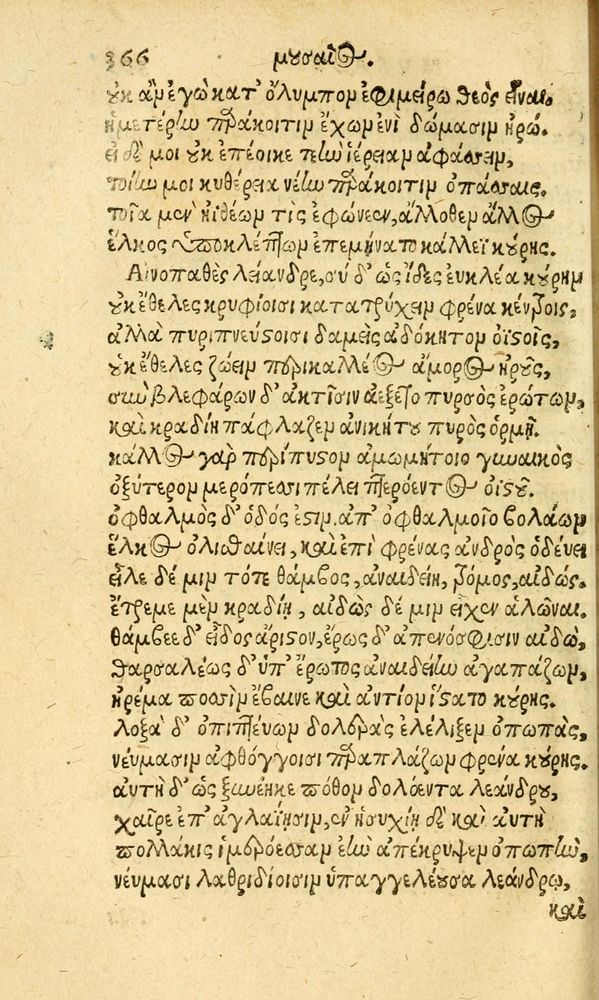 366 μουσαῖος.
οὐκ ἂν ἐγὼ κατ' ὄλυμπον ἐφιμείρω θεὸς εἶναι,
ἡμετέρην παράκοιτιν ἔχων ἐνὶ δώμασιν ἡρώ.
εἰ δέ μοι οὐκ ἐπέοικε τεὴν ἱέρειαν ἀφάσσειν,
τοίην μοι κυθέρεια νέην παράκοιτιν ὀπάσσαις.
τοῖα μὲν ἠϊθέων τὶς ἐφώνεεν, ἄλλοθεν ἄλλος
ἕλκος ὑποκλέπτων ἐπεμήνατο κάλλεϊ κούρης.
Αἰνοπαθὲς λείανδρε, σὺ δ' ὡς ἴδες εὐκλέα κούρην
οὐκ ἔθελες κρυφίοισι κατατρύχειν φρένα κέντροις,
ἀλλὰ πυριπνεύστοισι δαμεὶς ἀδόκητον ὀϊστοῖς,
οὐκ ἔθελες ζώειν περικαλλέος ἄμορος ἡροῦς,
σὺν βλεφάρων δ' ἀκτῖσιν ἀέξετο πυρσὸς ἐρώτων,
καὶ κραδίη πάφλαζεν ἀνικήτου πυρὸς ὁρμῇ.
κάλλος γὰρ περίπυστον ἀμωμήτοιο γυναικὸς
ὀξύτερον μερόπεσσι πέλει πτερόεντος ὀϊστοῦ.
ὀφθαλμὸς δ' ὁδός ἐστιν. ἀπ' ὀφθαλμοῖο βολάων
ἕλκος ὀλισθαίνει, καὶ ἐπὶ φρένας ἀνδρὸς ὁδεύει
εἷλε δέ μιν τότε θάμβος, ἀναιδείη, τρόμος, αἰδώς.
ἔτρεμε μὲν κραδίη, αἰδὼς δέ μιν εἶχεν ἁλῶναι.
θάμβεε δ' εἶδος ἄριστον, ἔρως δ' ἀπενόσφισεν αἰδῶ,
θαρσαλέως δ' ὑπ' ἔρωτος ἀναιδείην ἀγαπάζων,
ἠρέμα ποσσὶν ἔβαινε καὶ ἀντίον ἵστατο κούρης.
λοξὰ δ' ὀπιπτεύων δολερὰς ἐλέλιξεν ὀπωπὰς,
νεύμασιν ἀφθόγγοισι παραπλάζων φρένα κούρης.
αὐτὴ δ' ὡς ξυνέηκε πόθον δολόεντα λεάνδρου,
χαῖρε ἐπ' ἀγλαΐῃσιν, ἐν ἡσυχίῃ δὲ καὶ αὐτὴ
πολλάκις ἱμερόεσσαν ἑὴν ἀπέκρυψεν ὀπωπὴν,
νεύμασι λαθριδίοισιν ὑπαγγελέουσα λεάνδρῳ,
καὶ